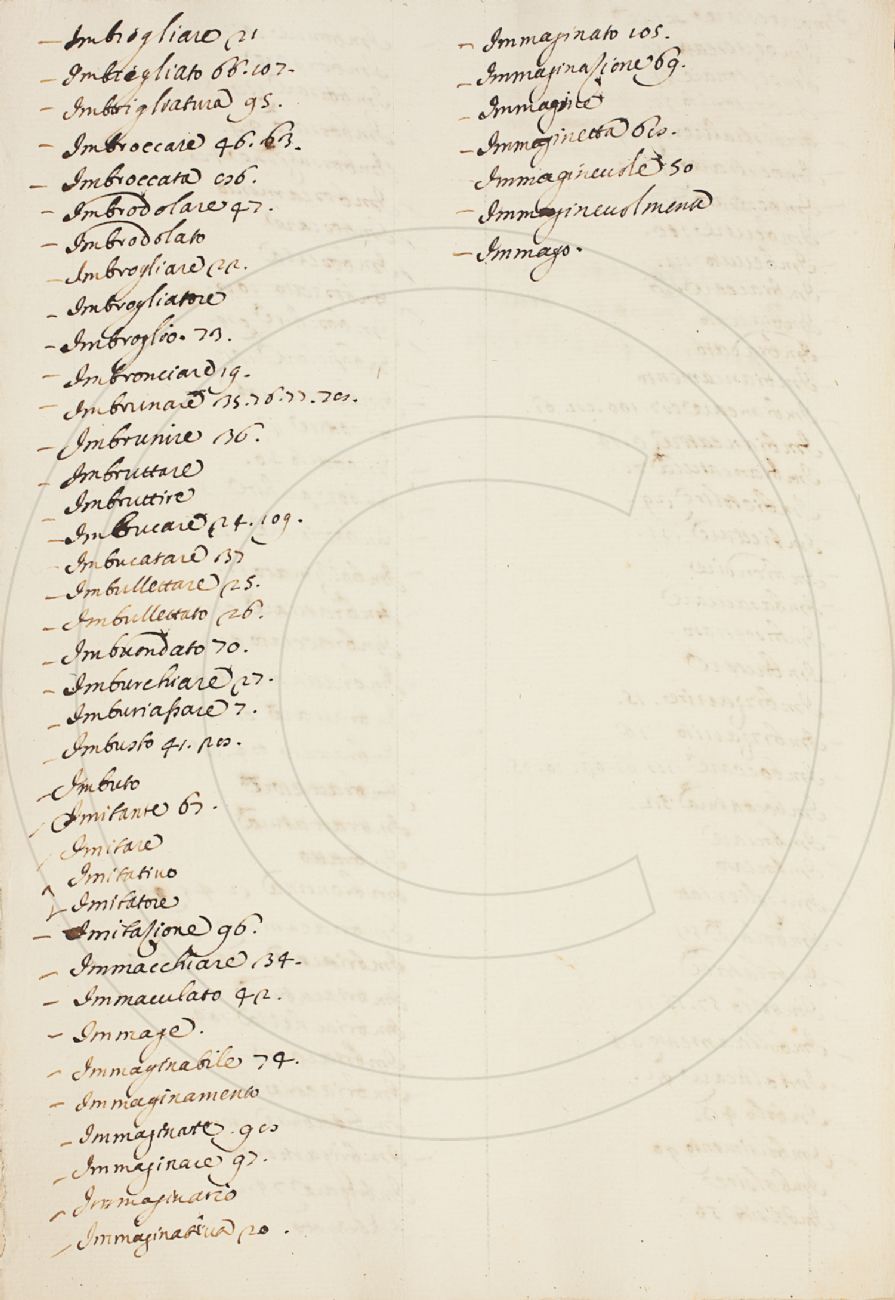 Imbrigliare 21
Imbrigliato 66. 107.
Imbrigliatura 95.
Imbroccare 46. 63.
Imbroccata
Imbrodolare 47.
Imbrodolato
Imbrogliare 22.
Imbrogliatore
Imbroglio. 73.
Imbronciare 19.
Imbrunare 35. 76. 77.
Imbrunire 36.
Imbruttare
Imbruttire
Imbucare 24. 109.
Imbucatare 37
Imbullettare 25.
Imbullettato 26.
Imbuondato 70.
Imburchiare 27.
Imburiassare 7.
Imbusto 41.
Imbuto
Imitante 67.
Imitare
Imitativo
Imitatore
Imitazione 96.
Immacchiare 34.
Immaculato 42.
Immage.
Immaginabile 74.
Immaginamento
Immaginante
Immaginare 97.
Immaginario
Immaginativa 20.
Immaginato 105.
Immaginazione 69.
Immagine
Immaginetta
Immaginevole 50
Immaginevolmente
Immago.